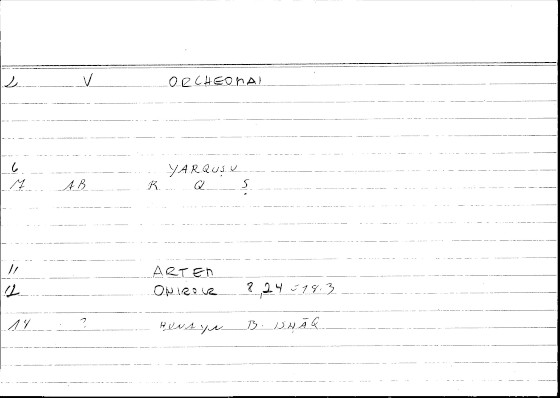 2 V ORCHEOMAI
6 YARQUṢU
17 AB R Q Ṣ
11 ARTEM
12 ONIROCR 2,24 = 18.3
14 ? HUNAYN B. ISHĀQ